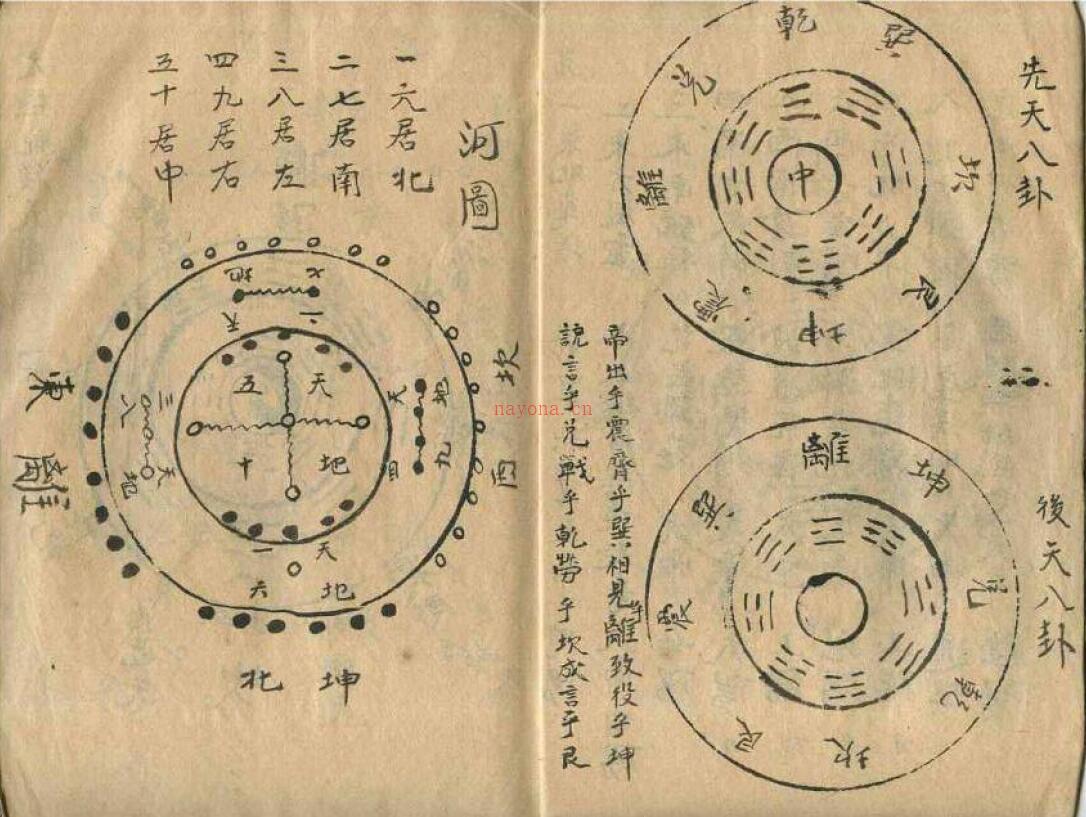 先天八卦
乾
巽
坎
艮
坤
震
離
兌
中
後天八卦
離
坤
兌
乾
坎
艮
震
巽
帝出乎震齊乎巽相見乎離致役乎坤
說言乎兌戰乎乾勞乎坎成言乎艮
河圖
一六居北
二七居南
三八居左
四九居右
五十居中
地
七
天
二
坎
西
地
九
天
四
天
五
地
十
東
離
三
八
天
地
天
一
地
六
北
坤
nayona.cn